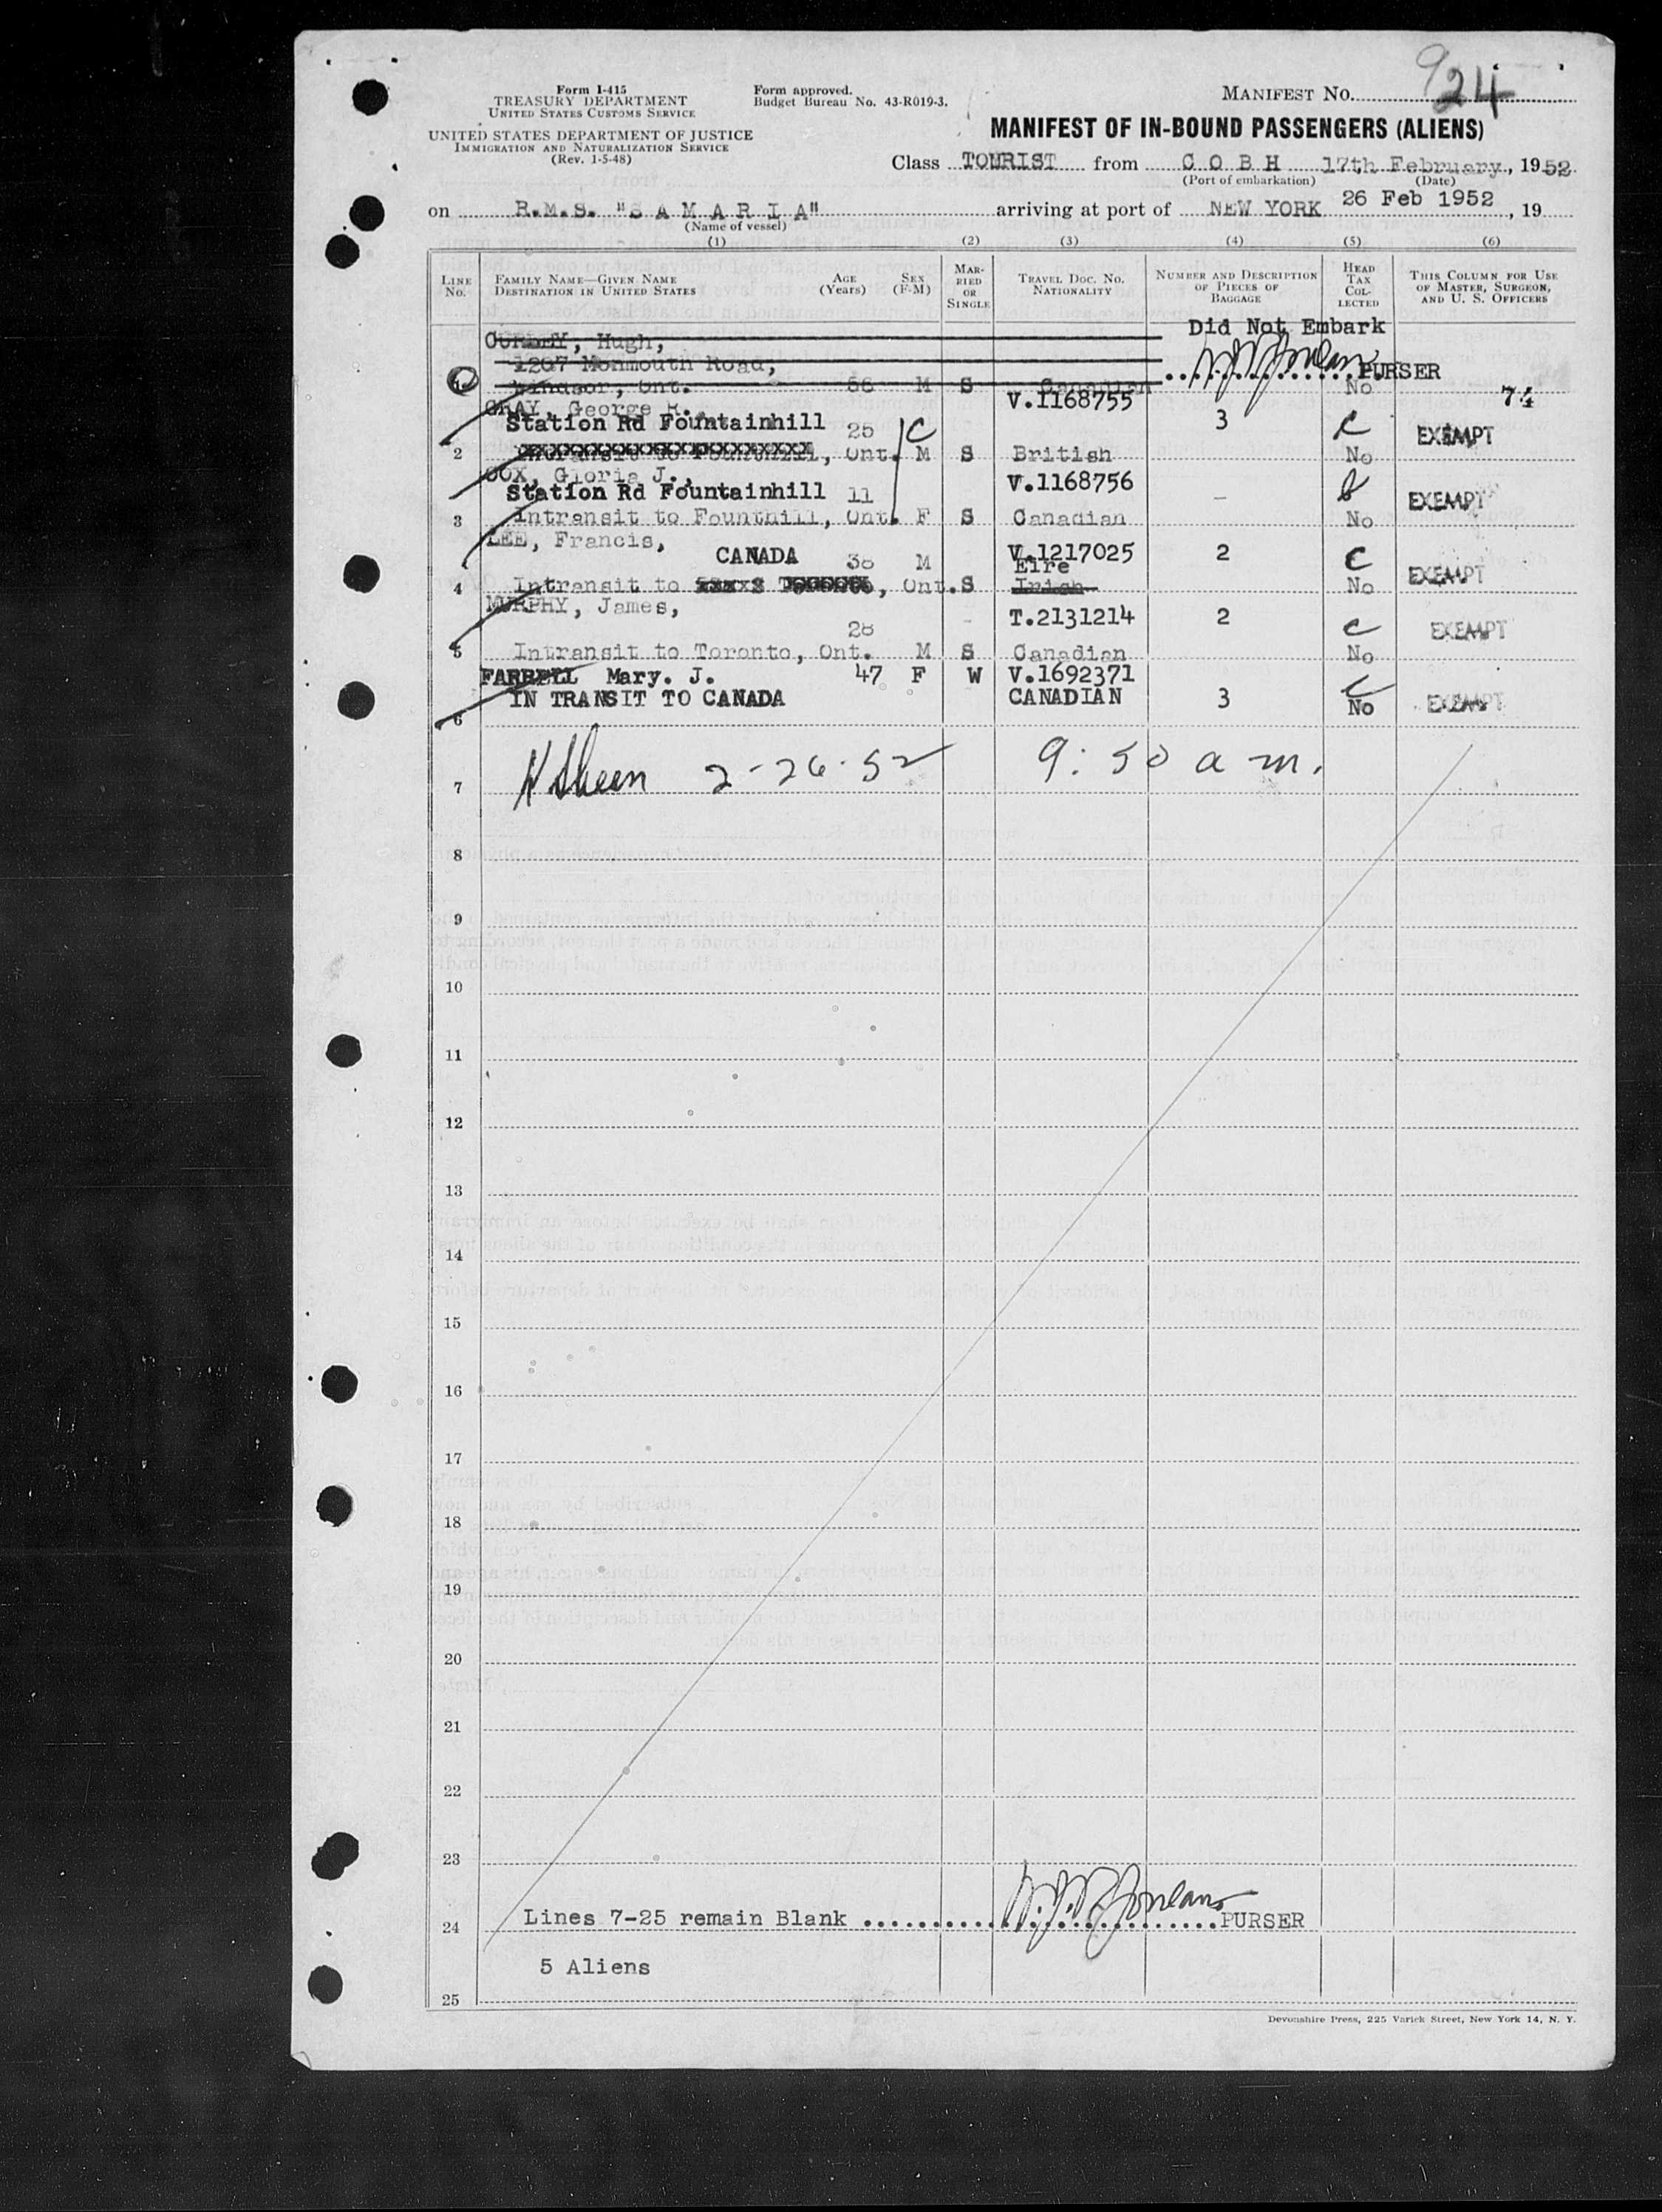 924
Form I-415
TREASURY DEPARTMENT
UNITED STATES CUSTOMS SERVICE
UNITED STATES DEPARTMENT OF JUSTICE
IMMIGRATION AND NATURALIZATION SERVICE
(Rev. 1-5-48)
Form approved.
Budget Bureau No. 43-R019-3.
MANIFEST NO.
MANIFEST OF IN-BOUND PASSENGERS (ALIENS)
Class TOURIST from C O B H 17th February, 1952
(Port of embarkation) (Date)
on R.M.S. "S A M A R I A" arriving at port of NEW YORK 26 Feb 1952, 19
(Name of vessel)
(1) (2) (3) (4) (5) (6)
LINE NO.
FAMILY NAME—GIVEN NAME
DESTINATION IN UNITED STATES
AGE (Years)
SEX (F-M)
MARRIED OR SINGLE
TRAVEL DOC. NO. NATIONALITY
NUMBER AND DESCRIPTION OF PIECES OF BAGGAGE
HEAD TAX COLLECTED
THIS COLUMN FOR USE OF MASTER, SURGEON, AND U. S. OFFICERS
Did Not Embark
Hugh,
1207 Monmouth Road,
PURSER
1 Windsor, Ont. 66 M S Canadian No
GRAY, George R., V.1168755
Station Rd Fountainhill 25 C 3 C EXEMPT
2 Ont. M S British No
COX, Gloria J., V.1168756
Station Rd Fountainhill 11 – EXEMPT
3 Intransit to Founthill, Ont. F S Canadian No
LEE, Francis,
CANADA 38 M V.1217025 2 C EXEMPT
Eire
4 Intransit to Ont. S Irish No
MURPHY, James, T.2131214 2 C EXEMPT
28
5 Intransit to Toronto, Ont. M S Canadian No
FARRELL Mary. J. 47 F W V.1692371
6 IN TRANSIT TO CANADA CANADIAN 3 No EXEMPT
7 2-26-52 9:50 a m.
8
9
10
11
12
13
14
15
16
17
18
19
20
21
22
23
24 Lines 7-25 remain Blank PURSER
5 Aliens
25
Devonshire Press, 225 Varick Street, New York 14, N. Y.